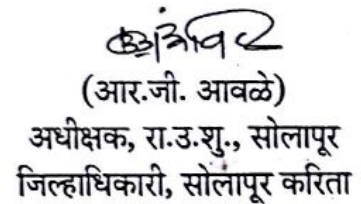 (आर.जी. आवळे)
अधीक्षक, रा.उ.शु., सोलापूर
जिल्हाधिकारी, सोलापूर करिता